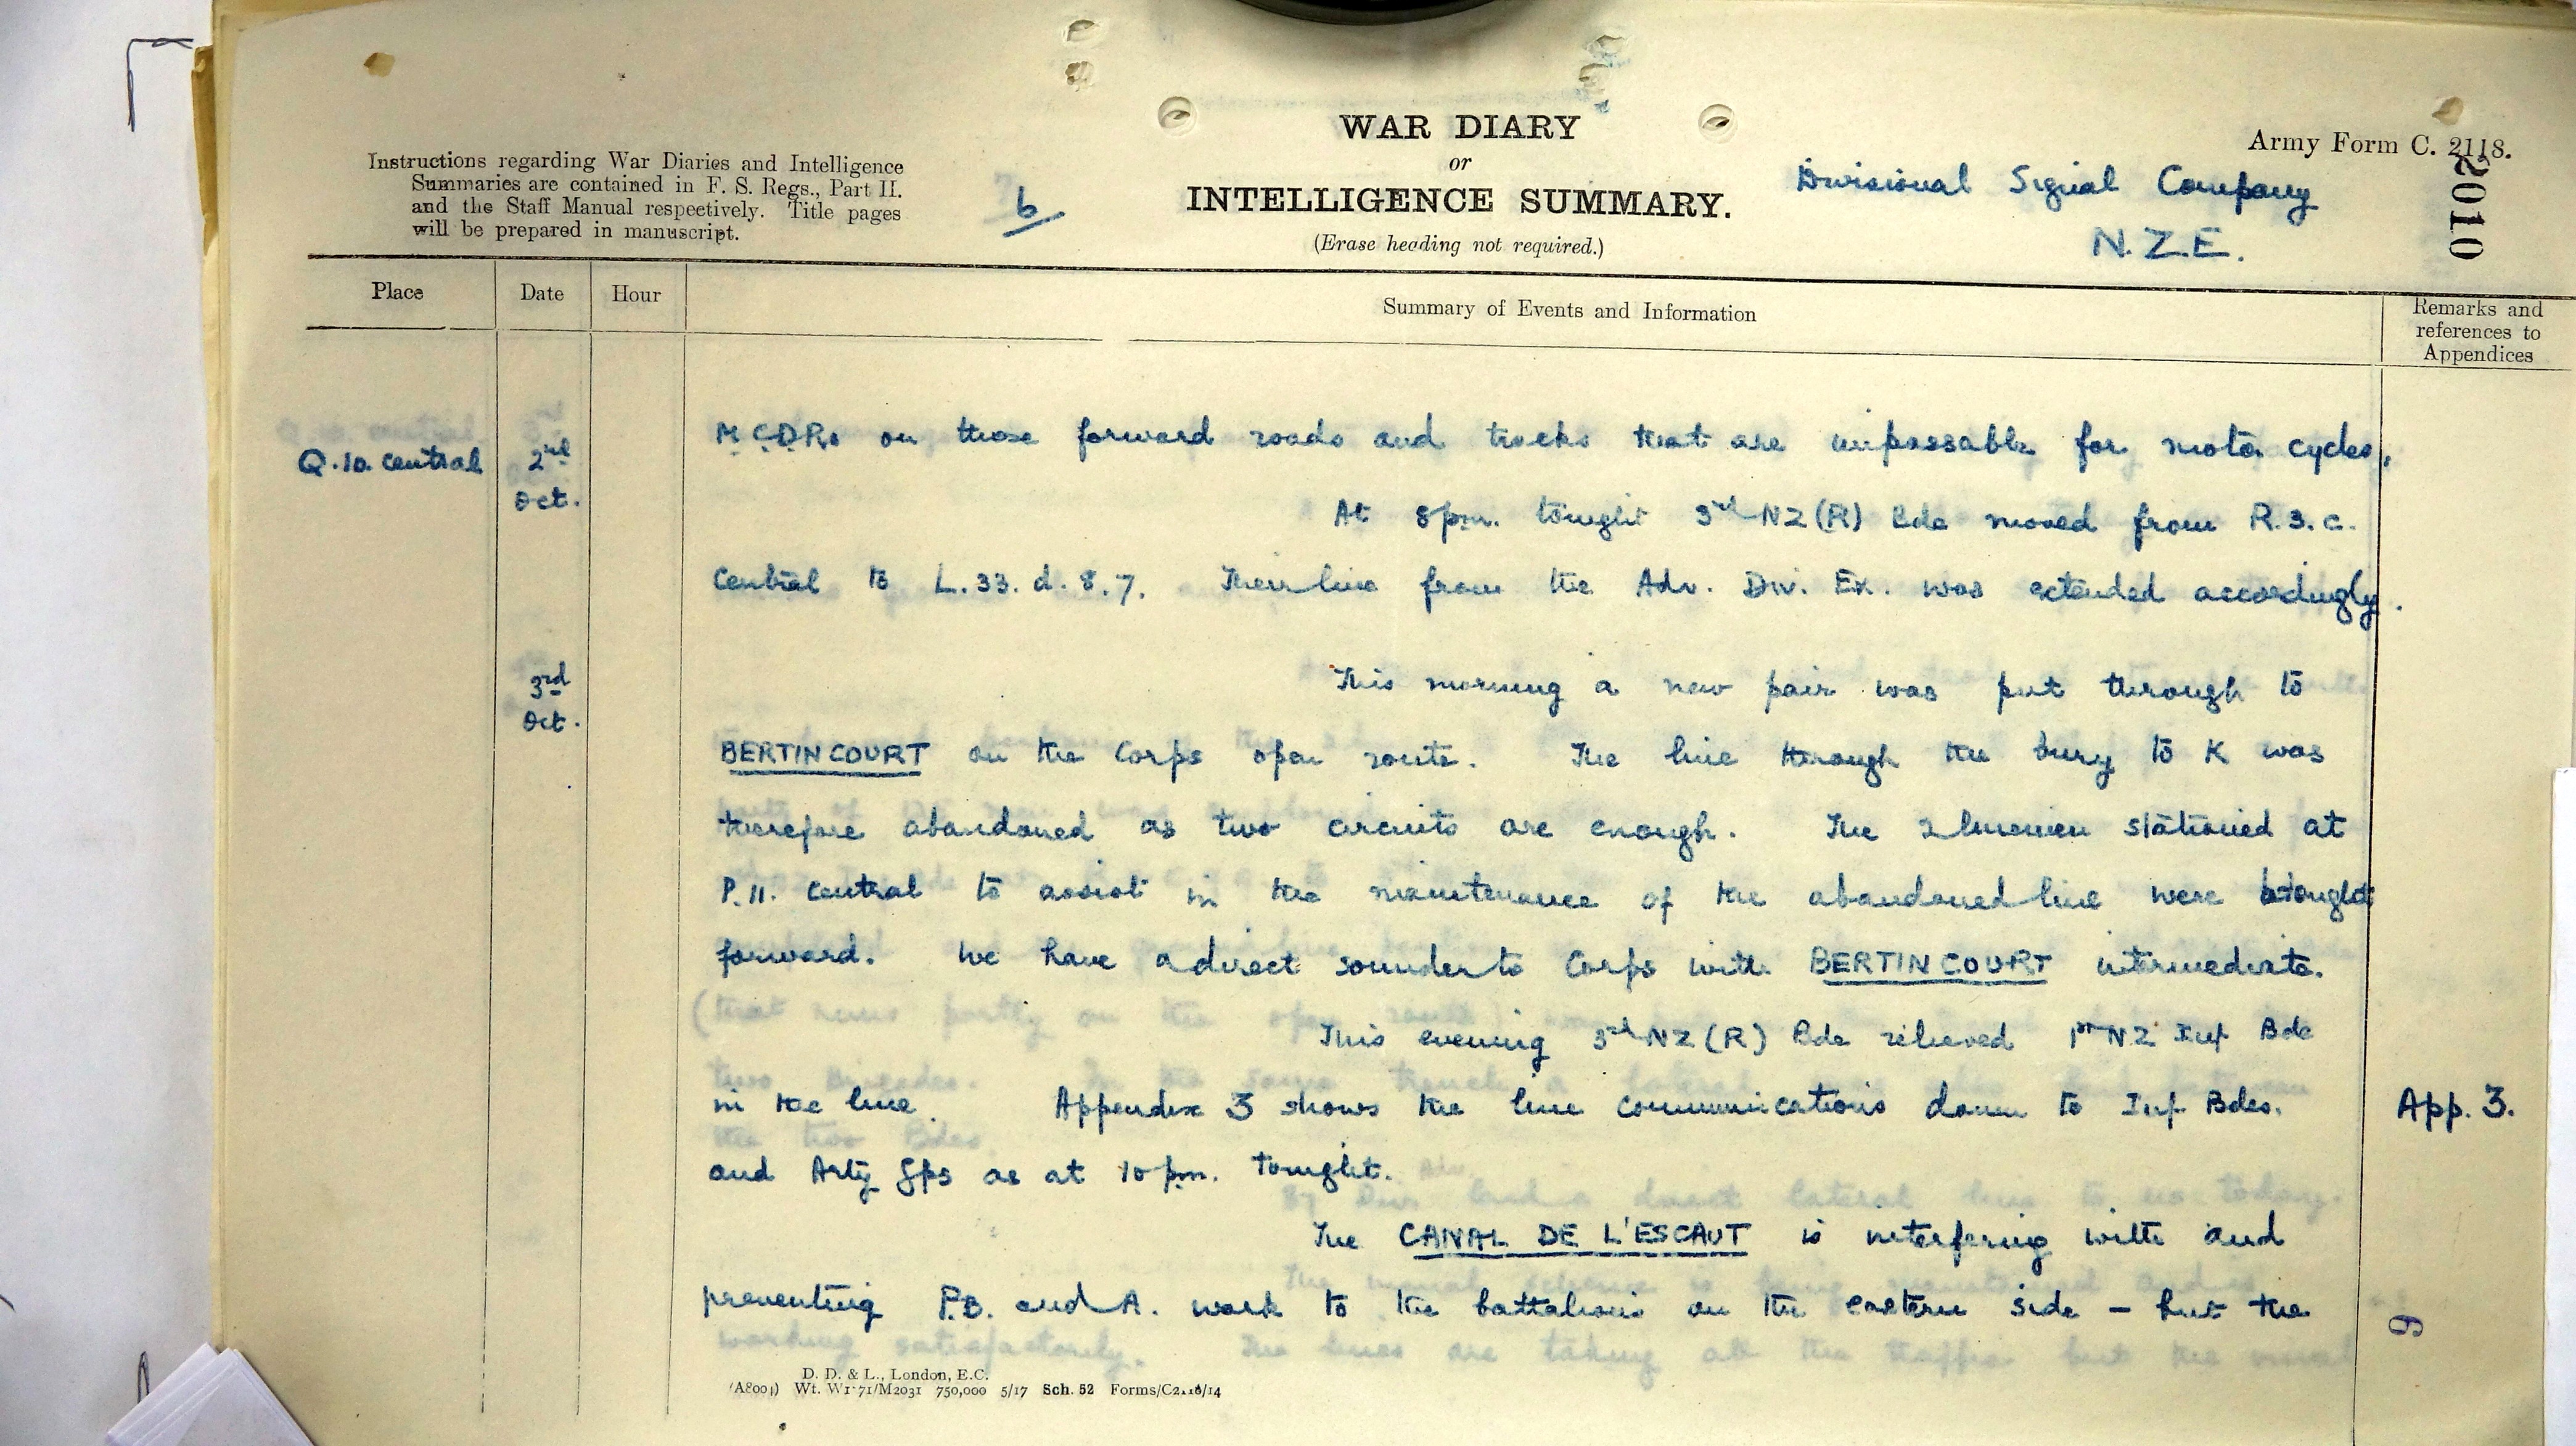 Army Form C. 2118.
WAR DIARY
or
INTELLIGENCE SUMMARY.
(Erase heading not required.)
Instructions regarding War Diaries and Intelligence
Summaries are contained in F. S. Regs., Part II.
and the Staff Manual respectively. Title pages
will be prepared in manuscript.
6
Divisional Signal Company
N.Z.E.
2010
Place
Date
Hour
Summary of Events and Information
Remarks and
references to
Appendices
Q.10. central
2nd
Oct.
M.C.D.Rs on those forward roads and tracks that are impassable for motor cycles.
At 8 p.m. tonight 3rd NZ (R) Bde moved from R.3.c.
Central to L.33.d.8.7. Their line from the Adv. Div. Ex. was extended accordingly.
3rd
Oct.
This morning a new pair was put through to
BERTINCOURT on the Corps open route. The line through the bury to K was
therefore abandoned as two circuits are enough. The 2 linemen stationed at
P.11. central to assist in the maintenance of the abandoned line were brought
forward. We have a direct sounder to Corps with BERTINCOURT intermediate.
This evening 3rd NZ (R) Bde relieved 1st NZ Inf Bde
in the line. Appendix 3 shows the line communications down to Inf Bdes.
App. 3.
and Arty Gps as at 10 p.m. tonight.
The CANAL DE L'ESCAUT is interfering with and
preventing P.B. and A. work to the battalions on the eastern side – but the
6
D. D. & L., London, E.C.
(A8001) Wt. W1771/M2031 750,000 5/17 Sch. 52 Forms/C2118/14